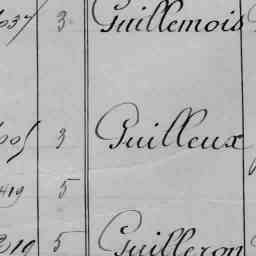 3 Guillemois
3 Guilleux
419 5
219 5 Guilleron